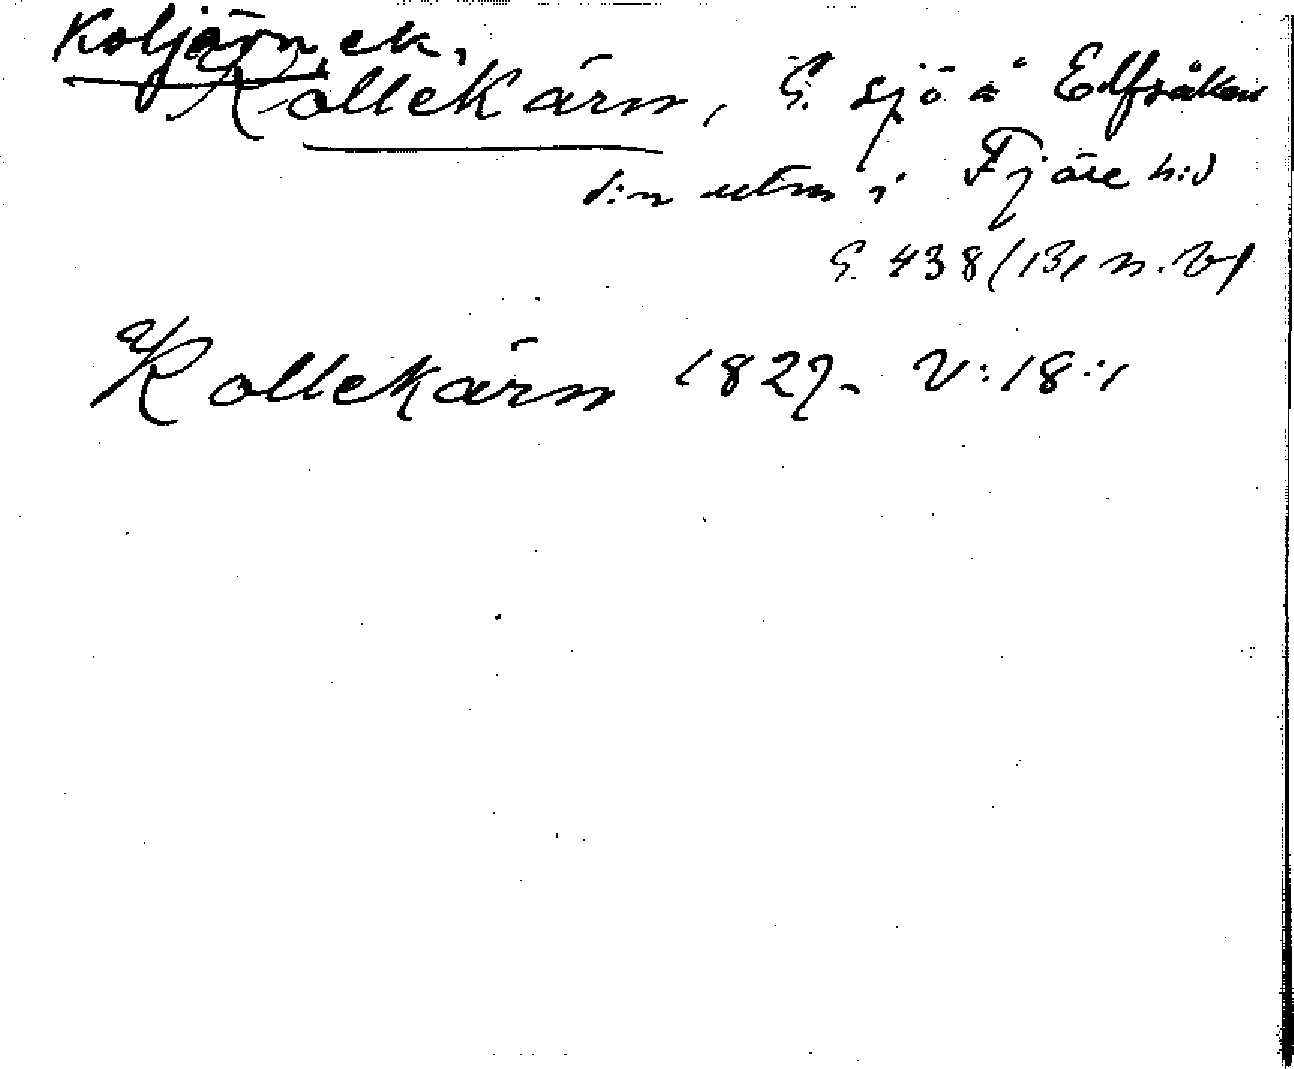 Koltjärn, ek.
Kollekärn, G. sjö å Elfsåkers
s:n utm i Fjäre h:d
G. 438/131 n.
a/ Kollekärn 1827. V:18:1